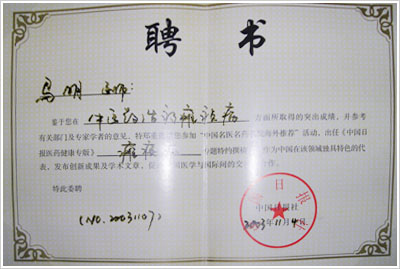 聘 书
马明 医师:
鉴于您在 中医药治 疾病 方面所取得的突出成绩,并参考
有关部门及专家学者的意见,特郑重 您参加“中国名医名药 海外推荐”活动,出任《中国日
报医药健康专版》 专题特约撰稿 作为中国在该领域独具特色的代
表,发布创新成果及学术文章,促 医学与国际间的交 作。
特此委聘
(NO. 2003110) 中国日报社
2003年11月4日